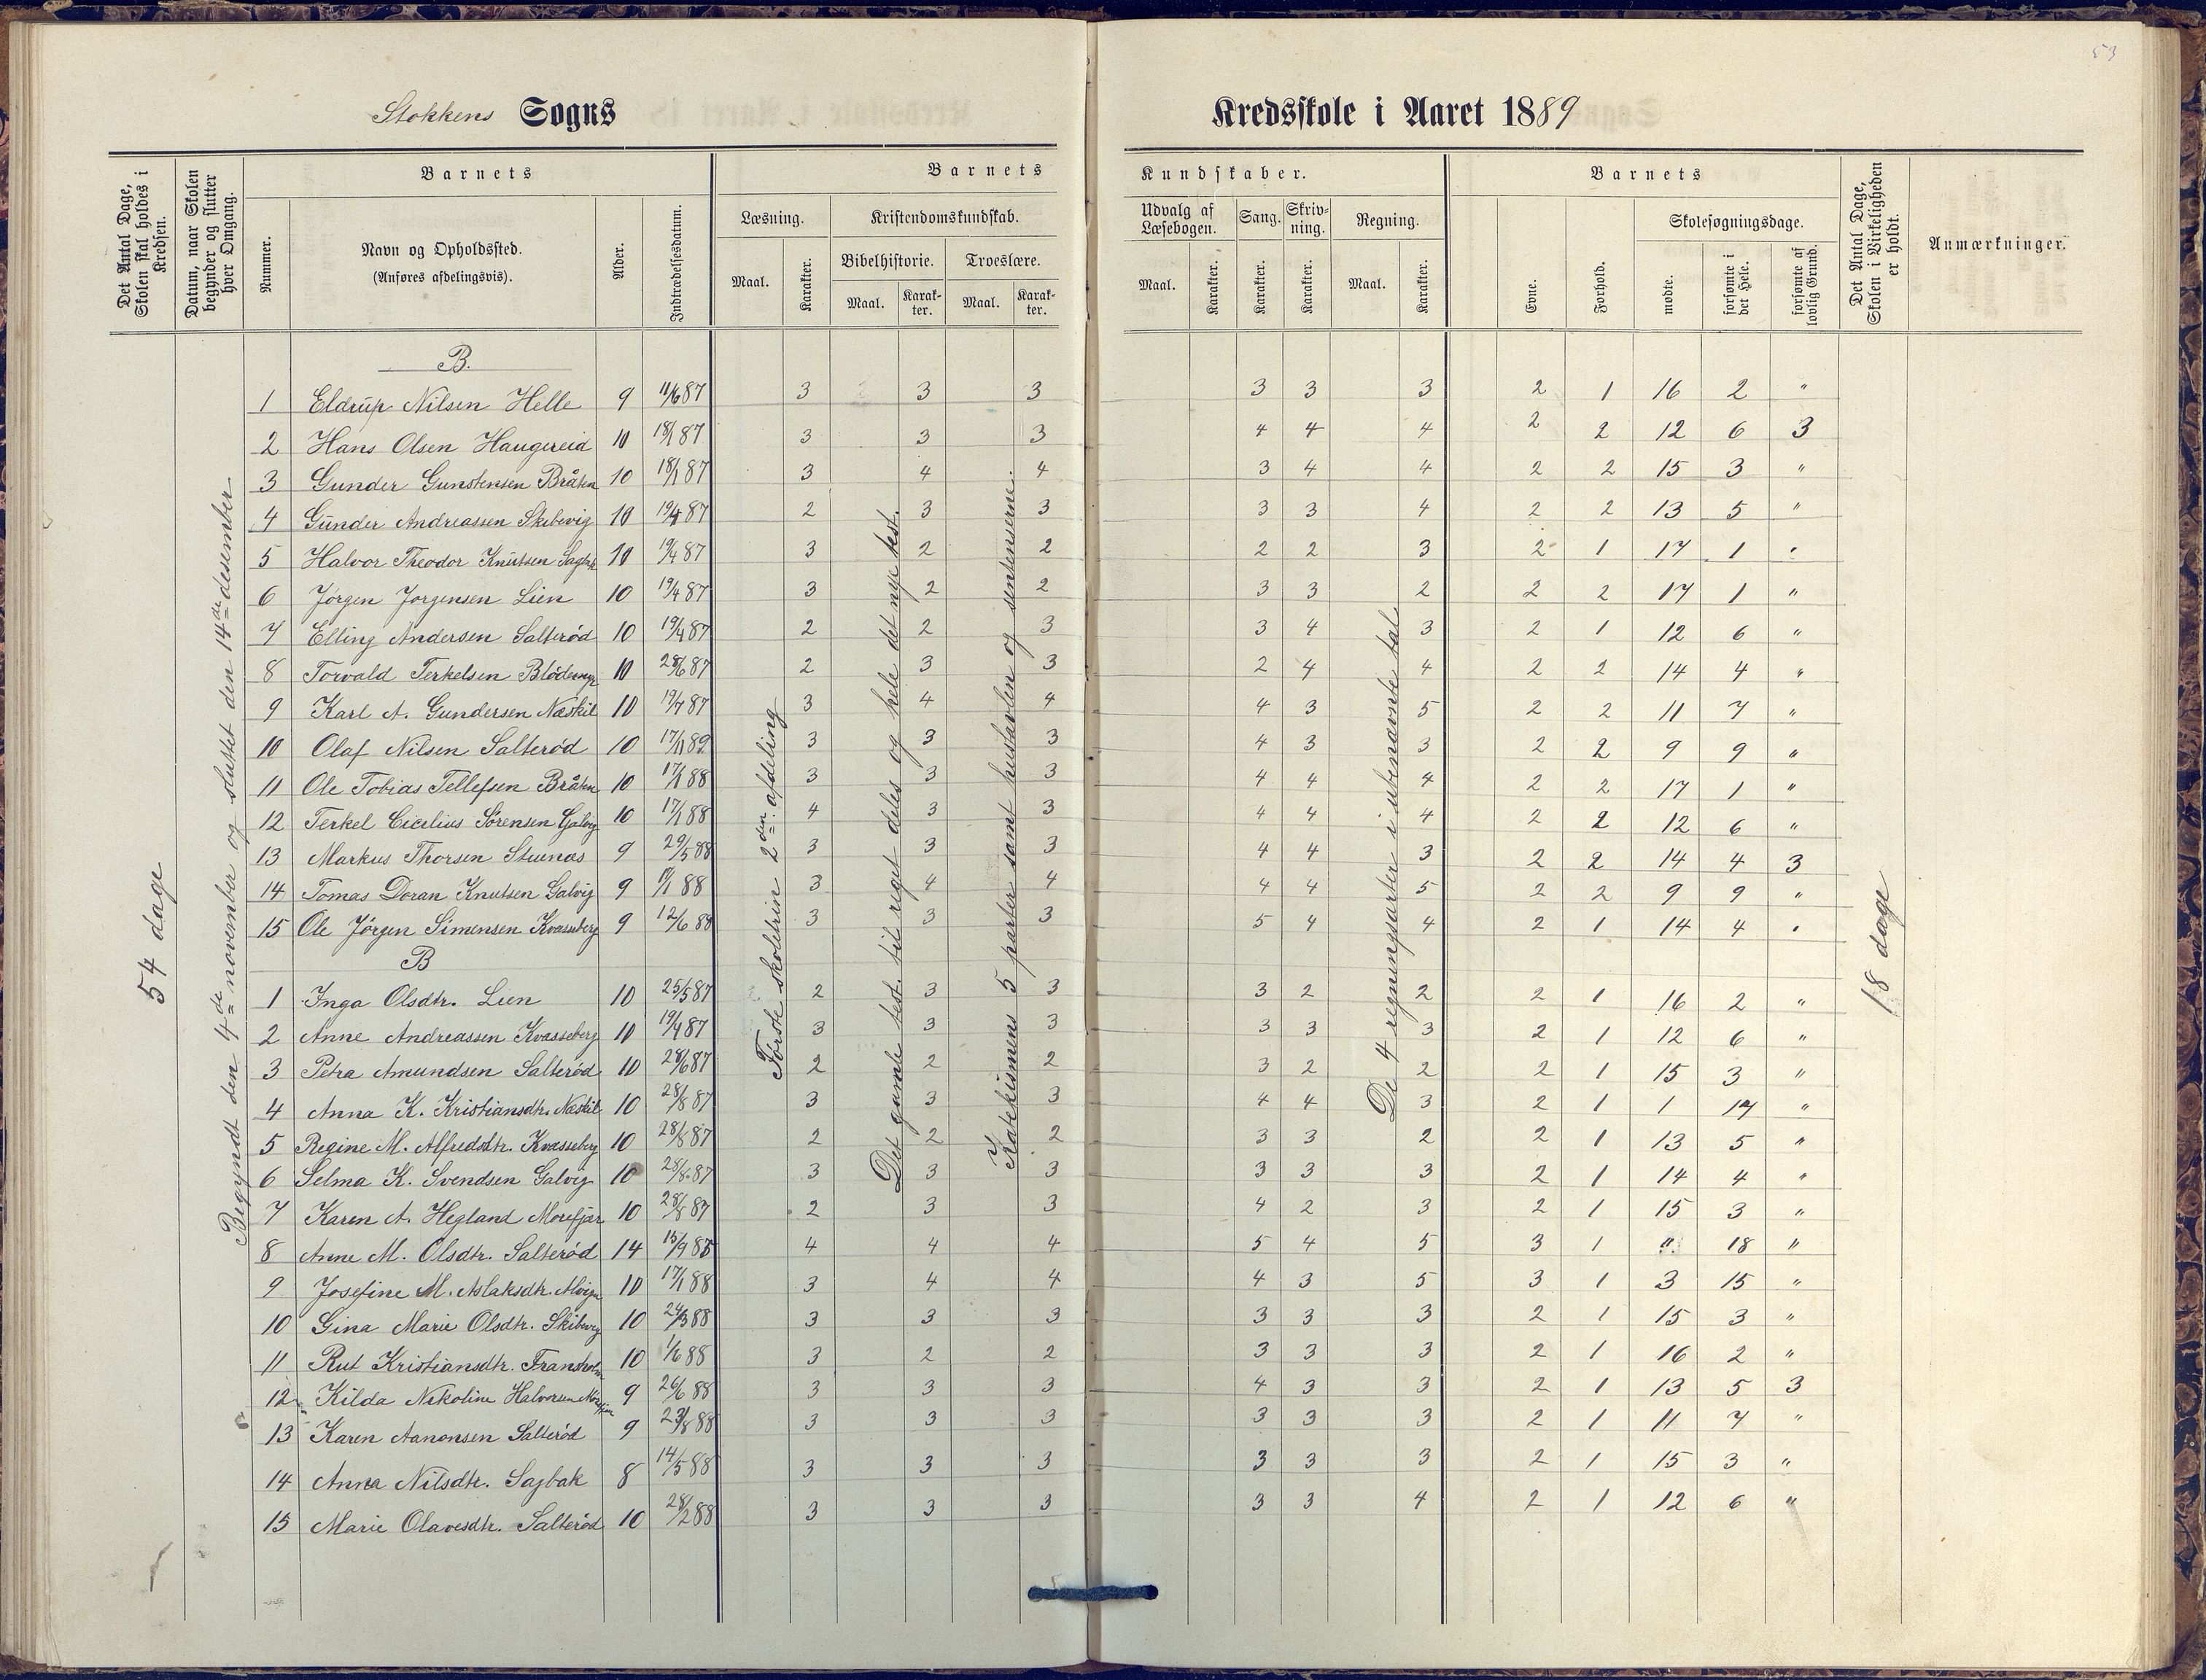 53
Stokkens Sogns Kredsskole i Aaret 1889
Det Antal Dage, Skolen skal holdes i Kredsen.
Datum, naar Skolen begynder og slutter hver Omgang.
Barnets
Nummer.
Navn og Opholdssted.
(Anføres afdelingsvis).
Alder.
Indtrædelsesdatum.
Barnets Kundskaber.
Læsning.
Maal.
Karakter.
Kristendomskundskab.
Bibelhistorie.
Maal.
Karakter.
Troeslære.
Maal.
Karakter.
Udvalg af Læsebogen.
Maal.
Karakter.
Sang.
Karakter.
Skrivning.
Karakter.
Regning.
Maal.
Karakter.
Barnets
Evne.
Forhold.
Skolesøgningsdage.
mødte.
forsømte i det Hele.
forsømte af lovlig Grund.
Det Antal Dage, Skolen i Virkeligheden er holdt.
Anmærkninger.
54 dage
Begyndt den 4de november og sluttet den 14de desember
Første skoletrin 2den afdeling
Det gamle test. til riget deles og hele det nye test.
Katekismens 5 parter samt hustavlen og sentenserne.
De 4 regningsarter i ubenævnte tal
18 dage
B.
1 Eldrup Nilsen Helle 9 11/6 87 3 3 3 3 3 3 2 1 16 2 "
2 Hans Olsen Haugereid 10 18/1 87 3 3 3 4 4 4 2 2 12 6 3
3 Gunder Gunstensen Bråten 10 18/1 87 3 4 4 3 4 4 2 2 15 3 "
4 Gunder Andreassen Skibevig 10 19/4 87 2 3 3 3 3 4 2 2 13 5 "
5 Halvor Theodor Knutsen Sagbk 10 19/4 87 3 2 2 2 2 3 2 1 17 1 "
6 Jørgen Jørgensen Lien 10 19/4 87 3 2 2 3 3 2 2 2 17 1 "
7 Elling Andersen Salterød 10 19/4 87 2 2 3 3 4 3 2 1 12 6 "
8 Torvald Terkelsen Blødemyr 10 28/6 87 2 3 3 2 4 4 2 2 14 4 "
9 Karl A. Gundersen Næskil 10 19/7 87 3 4 4 4 3 5 2 2 11 7 "
10 Olaf Nilsen Salterød 10 17/1 89 3 3 3 4 3 3 2 2 9 9 "
11 Ole Tobias Tellefsen Bråten 10 17/1 88 3 3 3 4 4 4 2 2 17 1 "
12 Terkel Cicilius Sørensen Galvig 10 17/1 88 4 3 3 4 4 4 2 2 12 6 "
13 Markus Thorsen Stuenæs 9 29/5 88 3 3 3 4 4 3 2 2 14 4 3
14 Tomas Doran Knutsen Galvig 9 88 3 4 4 4 4 5 2 2 9 9 "
15 Ole Jørgen Simensen Kvasseberg 9 12/6 88 3 3 3 5 4 4 2 1 14 4 "
B
1 Inga Olsdtr. Lien 10 25/5 87 2 3 3 3 2 2 2 1 16 2 "
2 Anne Andreassen Kvasseberg 10 19/4 87 3 3 3 3 3 3 2 1 12 6 "
3 Petra Amundsen Salterød 10 28/6 87 2 2 2 3 2 2 2 1 15 3 "
4 Anna K. Kristiansdtr. Næskil 10 28/8 87 3 3 3 4 4 3 2 1 1 17 "
5 Regine M. Alfredsdtr. Kvasseberg 10 28/8 87 2 2 2 3 3 2 2 1 13 5 "
6 Selma K. Svendsen Galvig 10 28/8 87 3 3 3 3 3 3 2 1 14 4 "
7 Karen A. Hegland Morefjær 10 28/8 87 2 3 3 4 2 3 2 1 15 3 "
8 Anne M. Olsdtr. Salterød 14 15/9 85 4 4 4 5 4 5 3 1 " 18 "
9 Josefine M. Aslaksdtr. 10 17/1 88 3 4 4 4 3 5 3 1 3 15 "
10 Gina Marie Olsdtr. Skibevig 10 24/3 88 3 3 3 3 3 3 2 1 15 3 "
11 Rut Kristiansdtr. Fransholm 10 1/6 88 3 2 2 3 3 3 2 1 16 2 "
12 Kilda Nikoline Halvorsen Morefjær 9 26/6 88 3 3 3 4 3 3 2 1 13 5 3
13 Karen Aanonsen Salterød 9 23/8 88 3 3 3 3 3 3 2 1 11 7 "
14 Anna Nilsdtr. Sagbak 8 14/5 88 3 3 3 3 3 3 2 1 15 3 "
15 Marie Olavesdtr. Salterød 10 28/2 88 3 3 3 3 3 4 2 1 12 6 "